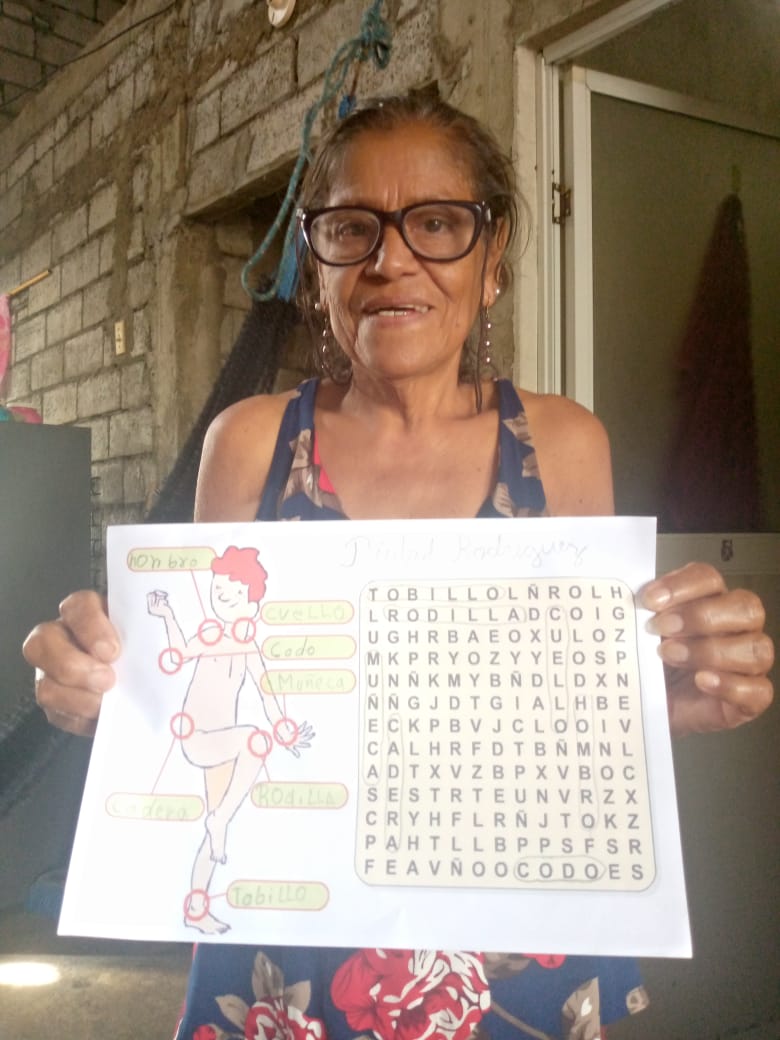 Piedad Rodriguez
honbro
CUeLLO
Codo
Muñeca
Cadera
RodiLLA
TobiLLO
T O B I L L O L Ñ R O L H
L R O D I L L A D C O I G
U G H R B A E O X U L O Z
M K P R Y O Z Y Y E O S P
U N Ñ K M Y B Ñ D L D X N
Ñ Ñ G J D T G I A L H B E
E C K P B V J C L O O I V
C A L H R F D T B Ñ M N L
A D T X V Z B P X V B O C
S E S T R T E U N V R Z X
C R Y H F L R Ñ J T O K Z
P A H T L L B P P S F S R
F E A V Ñ O O C O D O E S